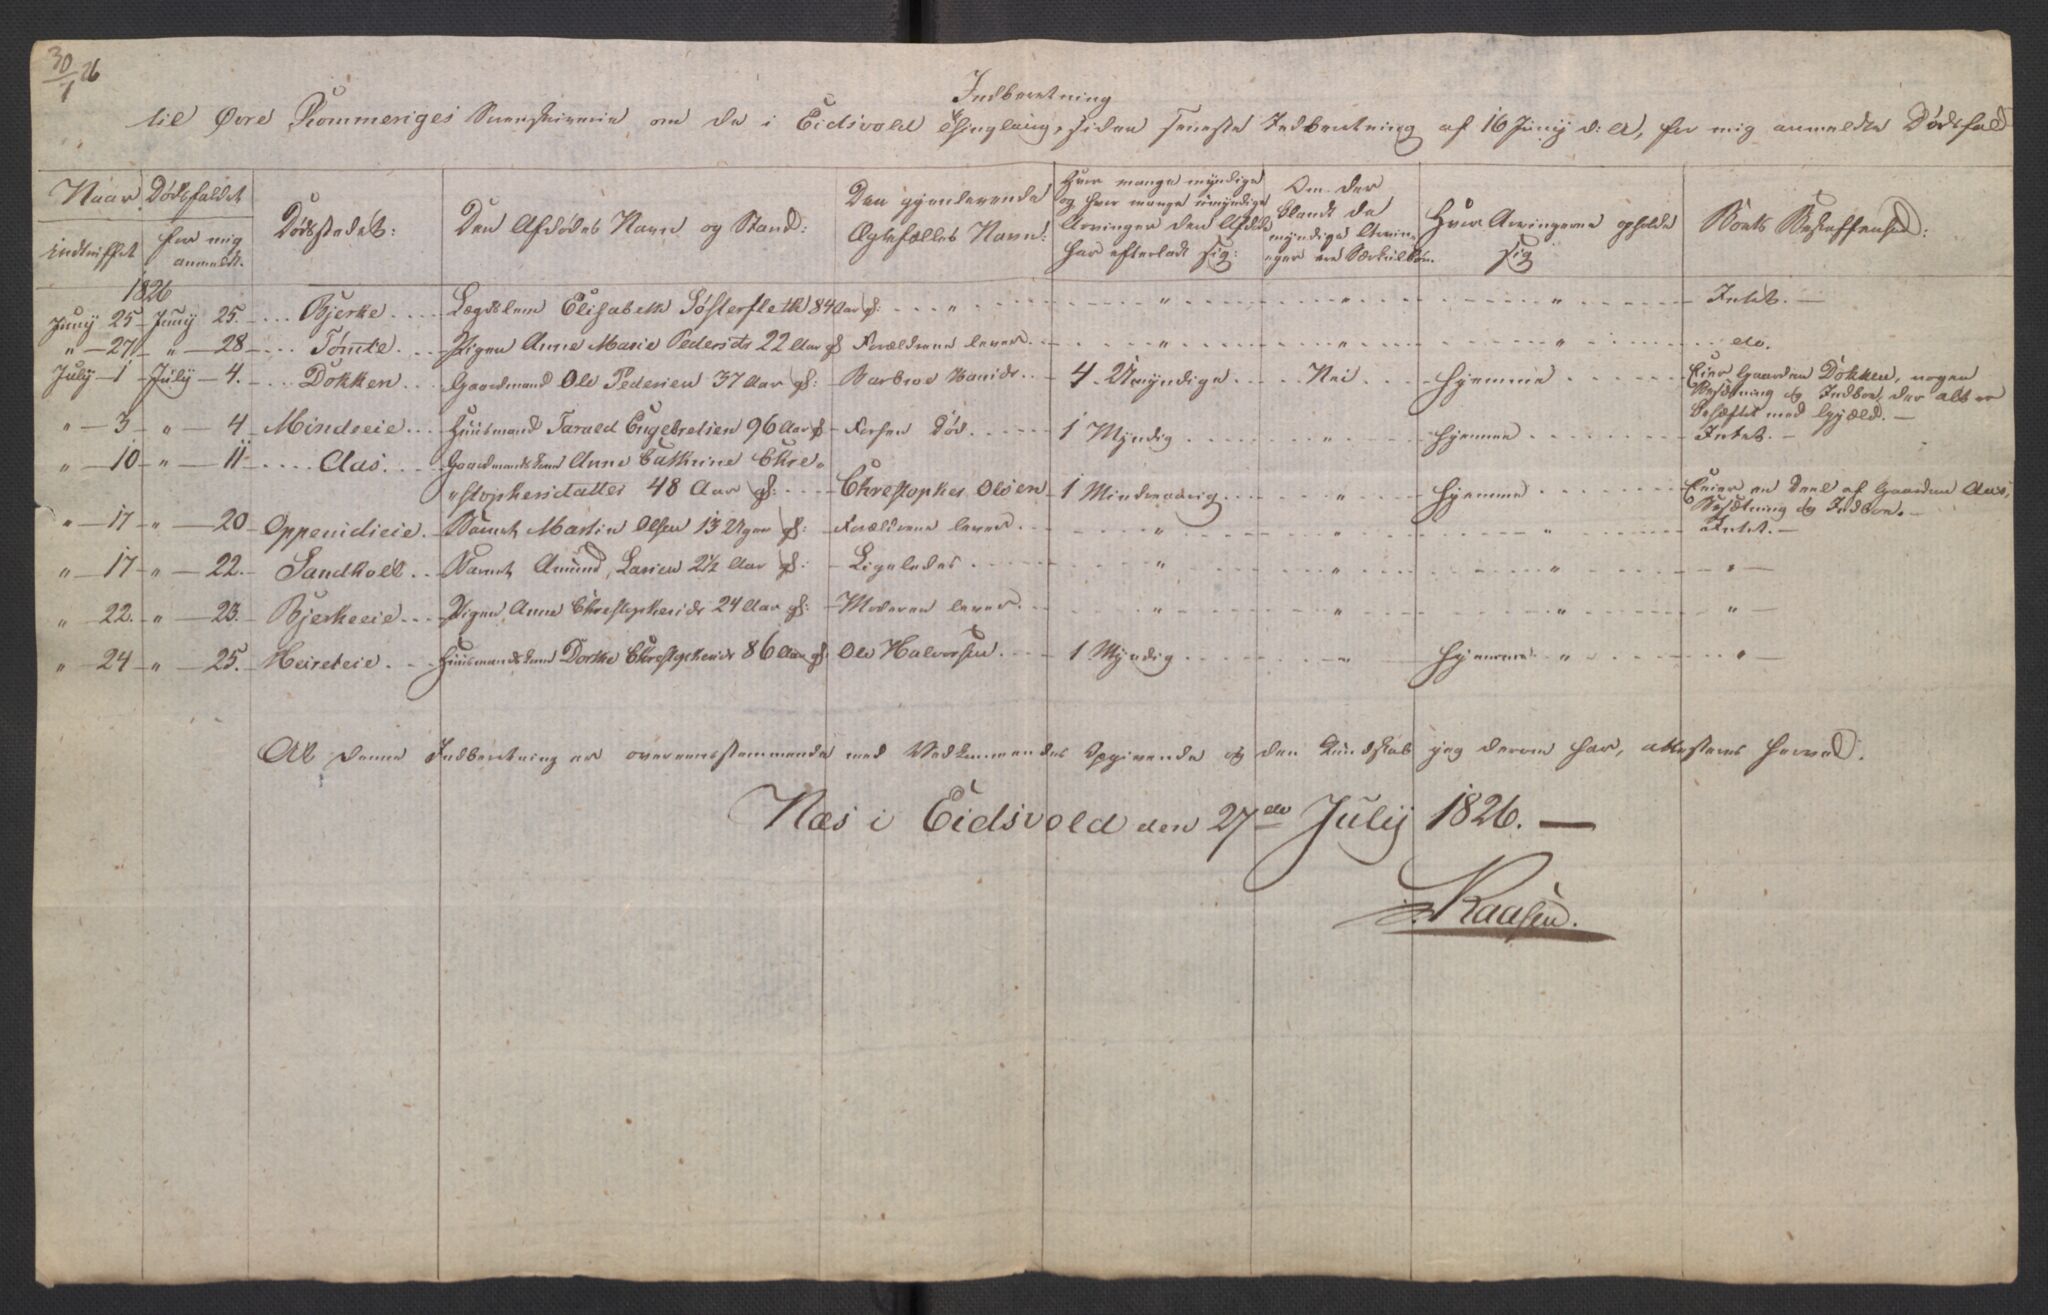 30/7 26
Indberetning
til Øvre Rommeriges Sorenskriverie om de i Eidsvold Thinglaug, siden seneste Indberetning af 16 Junij d: A, for mig anmeldte Dødsfald
Naar Dødsfaldet
indtruffet
for mig anmeldt.
Dødsstedet:
Den Afdødes Navn og Stand:
Den gjenlevende
Ægtefælles Navn:
Hvor mange myndige
og hvor mange umyndige
Arvinger den Afdøde
har efterladt sig:
Om der
blandt de
myndige Arvin-
ger ere
Hvor Arvingerne opholde
sig
Boets Beskaffenhed:
1826
Junij 25 Junij 25. Bjerke. Lægdslem Elisabeth Søsterfleth 84 Aar gl: " " " " Intet. —
" — 27 " — 28 Tømte. Pigen Anne Marie Pedersdr 22 Aar gl Forældrene lever. " " " do.
July — 1 July — 4. Dokken. Gaardmand Ole Pedersen 37 Aar gl: Barbroe 4 Umyndige Nei Hjemme Eier Gaarden Dokken, nogen
Besætning og Indboe, der alt er
behæftet med Gjæld. —
" — 3 " — 4 Mindreeie Huusmand Tarald Engebretsen 96 Aar gl Forhen død. 1 Myndig " Hjemme Intet. —
" — 10 " — 11 Aas. Gaardmandskone Anne Cathrine Chre-
stophersdatter 48 Aar gl: Chrestopher Olsen 1 Mindreaarig " Hjemme Eier en Deel af Gaarden Aas,
Besætning og Indboe. —
" — 17 " — 20 Oppenidieie. Barnet Martin Olsen 13 Uger gl: Forældrene lever " " " Intet. —
" — 17 " — 22. Sandholt Barnet Amund Larsen 2½ Aar gl: Ligeledes " " " " —
" — 22. " — 23. Bjerkeeie Pigen Anne Chrestophersdr 24 Aar gl: Moderen lever. " " " " —
" — 24 " — 25. Heireteie. Huusmandskone Dorthe Chrestophersdr 86 Aar gl. Ole Halvorsen. 1 Myndig " Hjemme " " —
At denne Indberetning er overeensstemmende med Vedkommendes Opgivende og den Kundskab jeg derom har, attesteres herved.
Næs i Eidsvold den 27de July 1826. —
Kaasen.